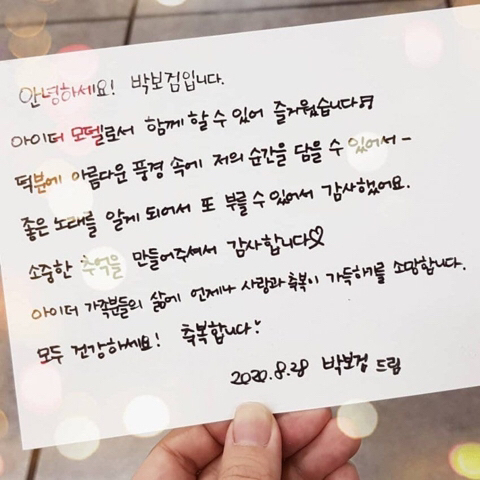 안녕하세요! 박보검입니다.
아이더 모델로서 함께 할 수 있어 즐거웠습니다♬
덕분에 아름다운 풍경 속에 저의 순간을 담을 수 있어서-
좋은 노래를 알게 되어서 또 부를 수 있어서 감사했어요.
소중한 추억을 만들어주셔서 감사합니다♡
아이더 가족분들의 삶에 언제나 사랑과 축복이 가득하기를 소망합니다.
모두 건강하세요! 축복합니다~
2020.8.28 박보검 드림